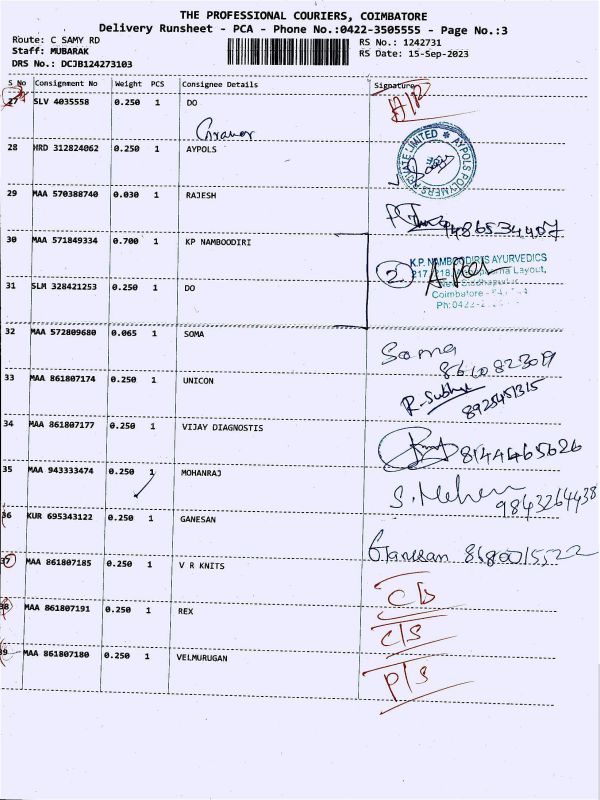 THE PROFESSIONAL COURIERS, COIMBATORE
Delivery Runsheet - PCA - Phone No.:0422-3505555 - Page No.:3
Route: C SAMY RD RS No.: 1242731
Staff: MUBARAK RS Date: 15-Sep-2023
DRS No.: DCJB124273103
S No Consignment No Weight PCS Consignee Details Signature
27 SLV 4035558 0.250 1 DO
28 HRD 312824062 0.250 1 AYPOLS
AYPOLS POLYMERS PRIVATE LIMITED
29 MAA 570388740 0.030 1 RAJESH
30 MAA 571849334 0.700 1 KP NAMBOODIRI
K.P. NAMBOODIRI'S AYURVEDICS
Layout,
Coimbatore
Ph:0422-2
2
31 SLM 328421253 0.250 1 DO
32 MAA 572809680 0.065 1 SOMA Soma
33 MAA 861807174 0.250 1 UNICON
8925451315
34 MAA 861807177 0.250 1 VIJAY DIAGNOSTIS 8144465626
35 MAA 943333474 0.250 1 MOHANRAJ 9843264438
36 KUR 695343122 0.250 1 GANESAN Ganesan
37 MAA 861807185 0.250 1 V R KNITS
38 MAA 861807191 0.250 1 REX C/S
39 MAA 861807180 0.250 1 VELMURUGAN P/S